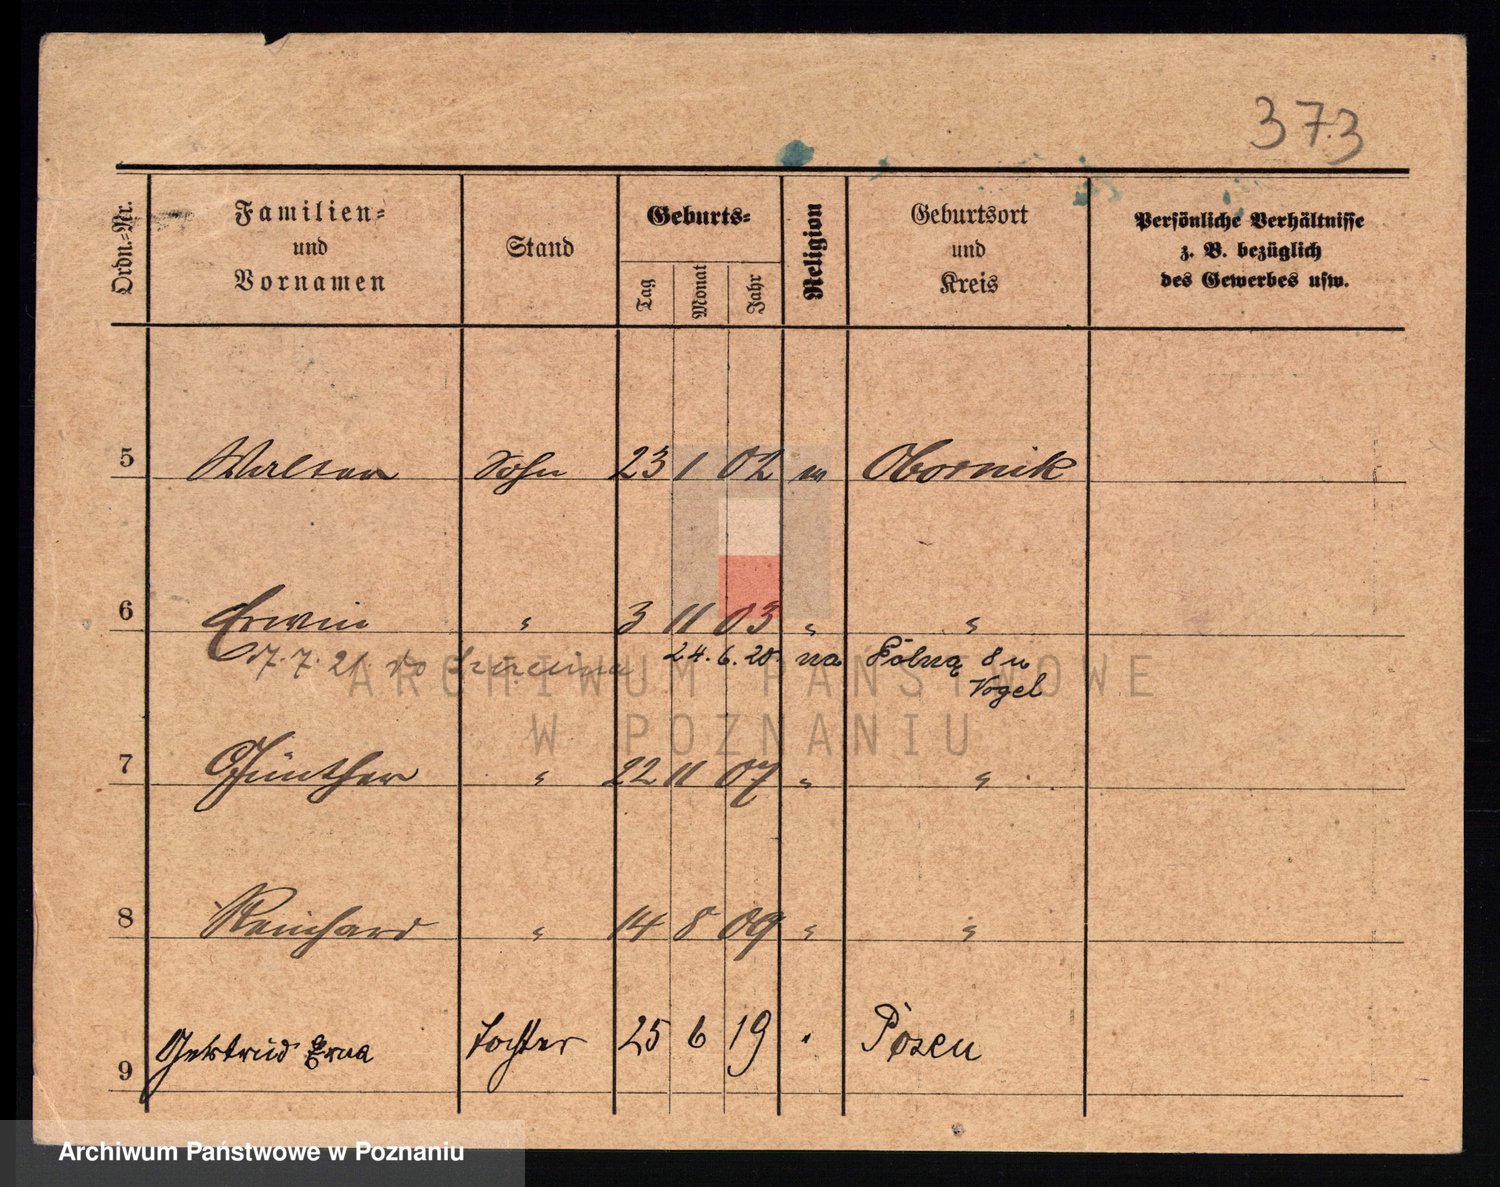 373
Ordn.-Nr.
Familien-
und
Vornamen
Stand
Geburts-
Tag
Monat
Jahr
Religion
Geburtsort
und
Kreis
Persönliche Verhältnisse
z. B. bezüglich
des Gewerbes usw.
5 Walter Sohn 23 1 02 Obornik
6 Erwin " 3 11 03 " "
17. 7. 21. do 24. 6. 20. na Polną 8 u
Vogel
7 Günther " 22 11 07 " "
8 Reinhard " 14 8 09 " "
9 Gertrud Erna Tochter 25 6 19 " Posen
ARCHIWUM PAŃSTWOWE
W POZNANIU
Archiwum Państwowe w Poznaniu